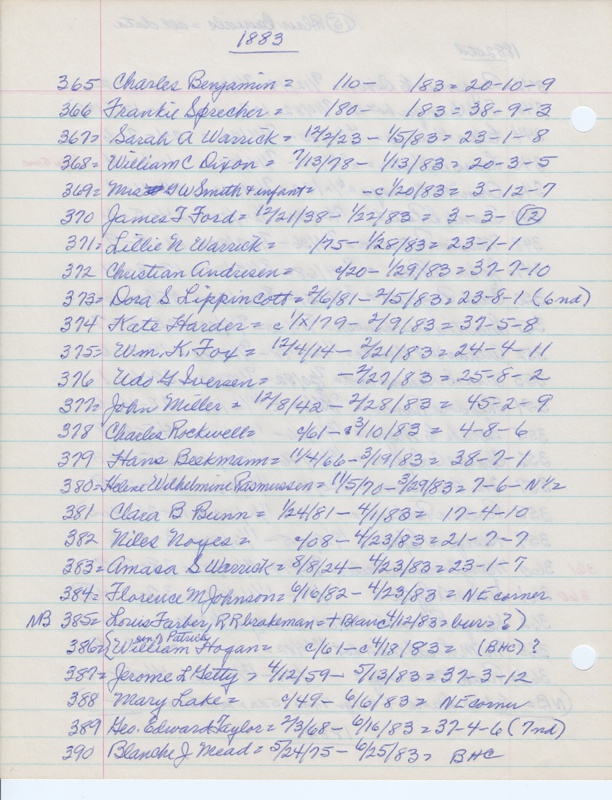 1883
365 Charles Benjamin = 110 - /83 = 20-10-9
366 Frankie Sprecher = /80 - /83 = 38-9-3
367 = Sarah A Warrick = 12/2/23 - 1/5/83 = 23-1-8
368 = William C Dixon = 7/13/78 - 1/13/83 = 20-3-5
369 = Mrs G W Smith + infant = - c 1/20/83 = 3-12-7
370 James T Ford = 12/21/38 - 1/22/83 = 3-3-(12)
371 = Lillie N Warrick = /75 - 1/28/83 = 23-1-1
372 Christian Andresen = c/20 - 1/29/83 = 37-7-10
373 = Dora S Lippincott = 2/6/81 - 2/5/83 = 23-8-1 (6nd)
374 Kate Harder = c 1/x/79 - 2/9/83 = 37-5-8
375 = Wm. K. Fox = 12/4/14 - 2/21/83 = 24-4-11
376 Udo G Iversen = - 2/27/83 = 25-8-2
377 = John Miller = 12/8/42 - 2/28/83 = 45-2-9
378 Charles Rockwell = c/61 - 3/10/83 = 4-8-6
379 Hans Beekmann = 11/4/66 - 3/19/83 = 38-7-1
380 = Helene Wilhelmine Rasmussen = 11/5/70 - 3/29/83 = 7-6-N1/2
381 Clara B Bunn = 1/24/81 - 4/1/83 = 17-4-10
382 Niles Noyes = c/08 - 4/23/83 = 21-7-7
383 = Amasa S Warrick = 8/8/24 - 4/23/83 = 23-1-7
384 = Florence M Johnson = 6/16/82 - 4/23/83 = NE corner
NB 385 = Louis Farber, R R brakeman = + Blanc 4/12/83 = bur = ?)
son of Patrick
386 = { William Hogan = c/61 - c 4/18/83 = (BHC) ?
387 = Jerome L Getty = 4/12/59 - 5/13/83 = 37-3-12
388 Mary Lake = c/49 - 6/6/83 = NE corner
389 Geo. Edward Taylor = 2/3/68 - 6/16/83 = 37-4-6 (7nd)
390 Blanche J. Mead = 5/24/75 - 6/25/83 = BHC